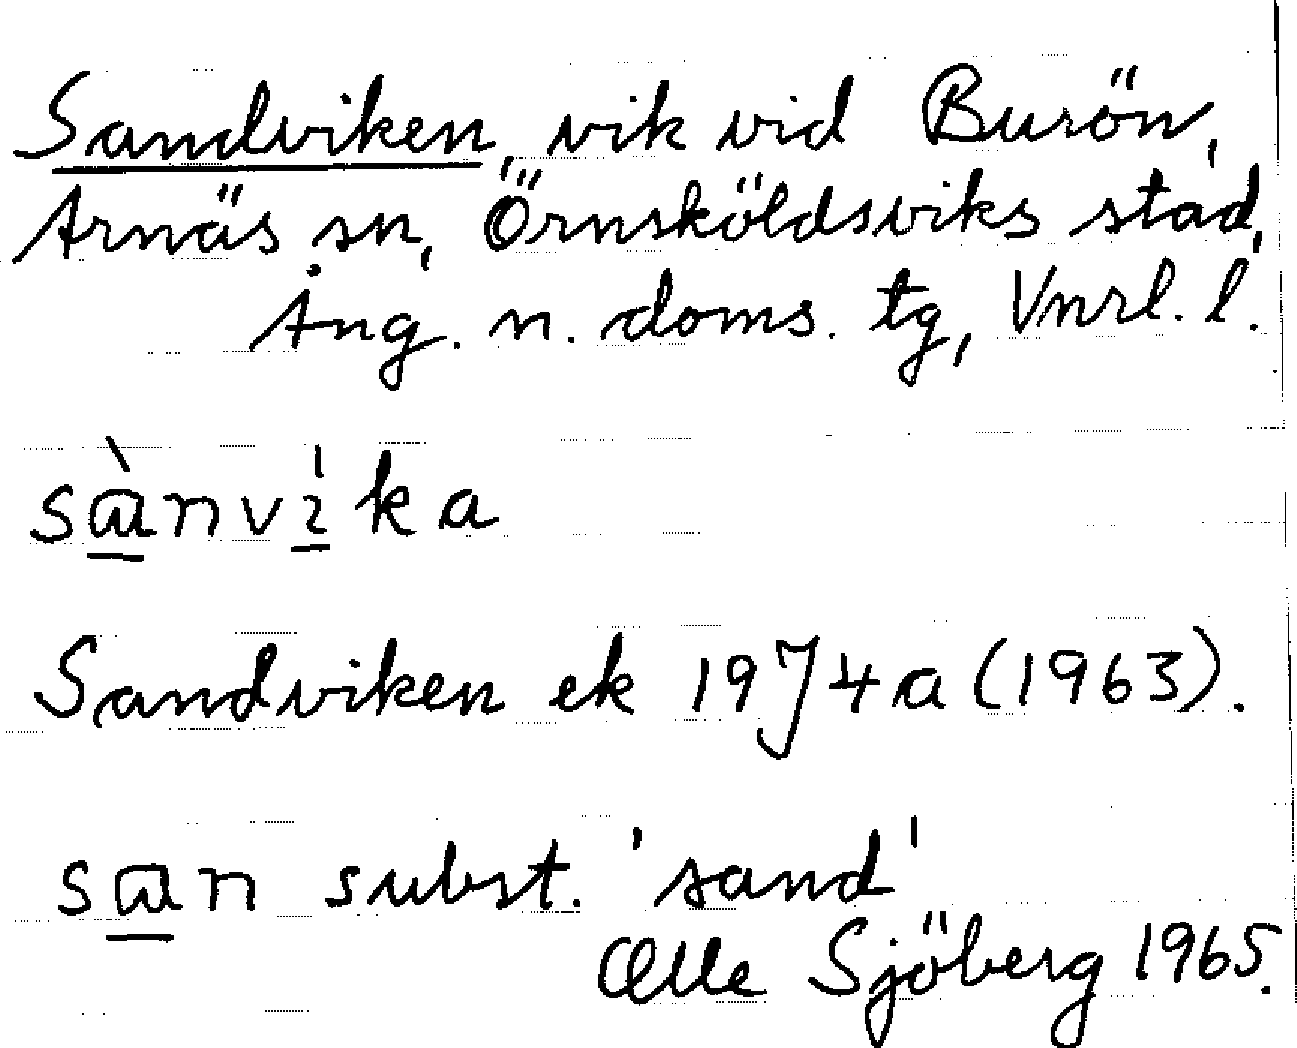 Sandviken, vik vid Burön,
Arnäs sn, Örnsköldsviks stad,
Ång. n. doms. tg, Vnrl. l.
sɑ̀nvìka
Sandviken ek 19J4a (1963).
sɑn subst. 'sand'
Olle Sjöberg 1965.